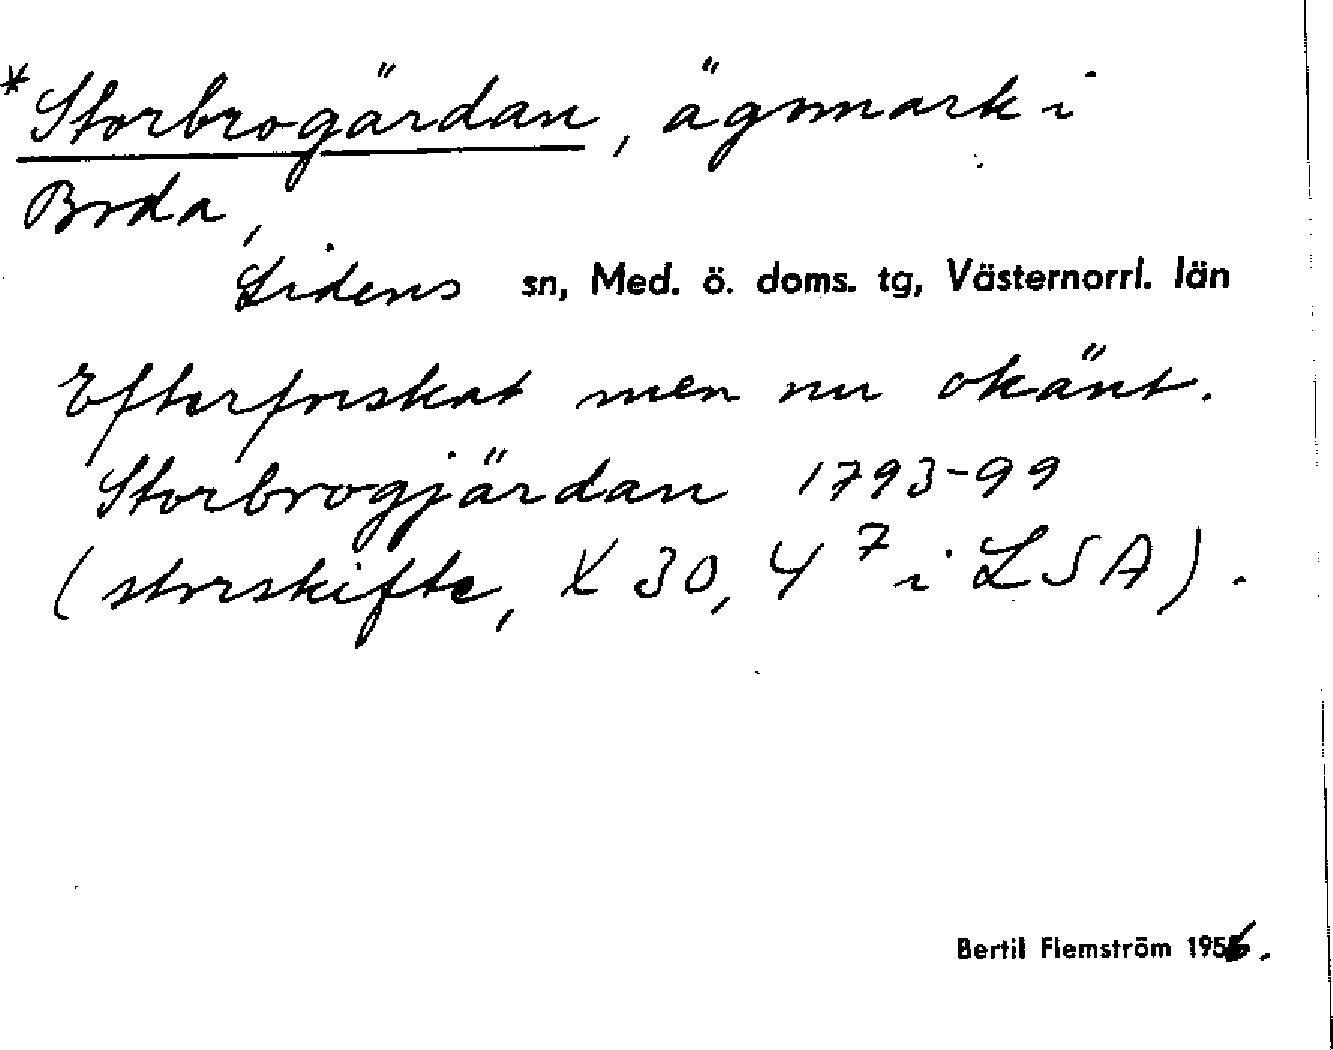 *Storbrogärdan, ägomark i
Boda,
Lidens sn, Med. ö. doms. tg, Västernorrl. län
Efterforskat men nu okänt.
Storbrogjärdan 1793-99
(storskifte, X 30, 4⁷ i LSA).
Bertil Flemström 1956.